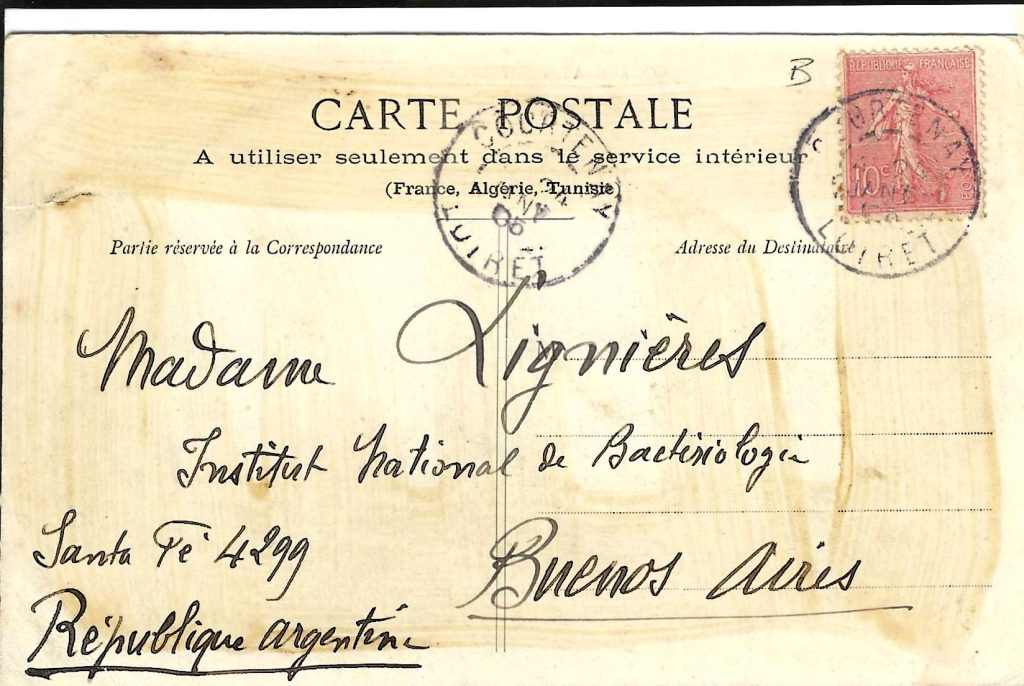 B
RÉPUBLIQUE FRANÇAISE
10c
POSTES
CARTE POSTALE
A utiliser seulement dans le service intérieur
(France, Algérie, Tunisie)
COURTENAY
24
JANV
05
LOIRET
LOIRET
Partie réservée à la Correspondance
Adresse du Destinataire
Madame Lignières
Institut National de Bactériologie
Santa Fé 4299
Buenos Aires
République argentine